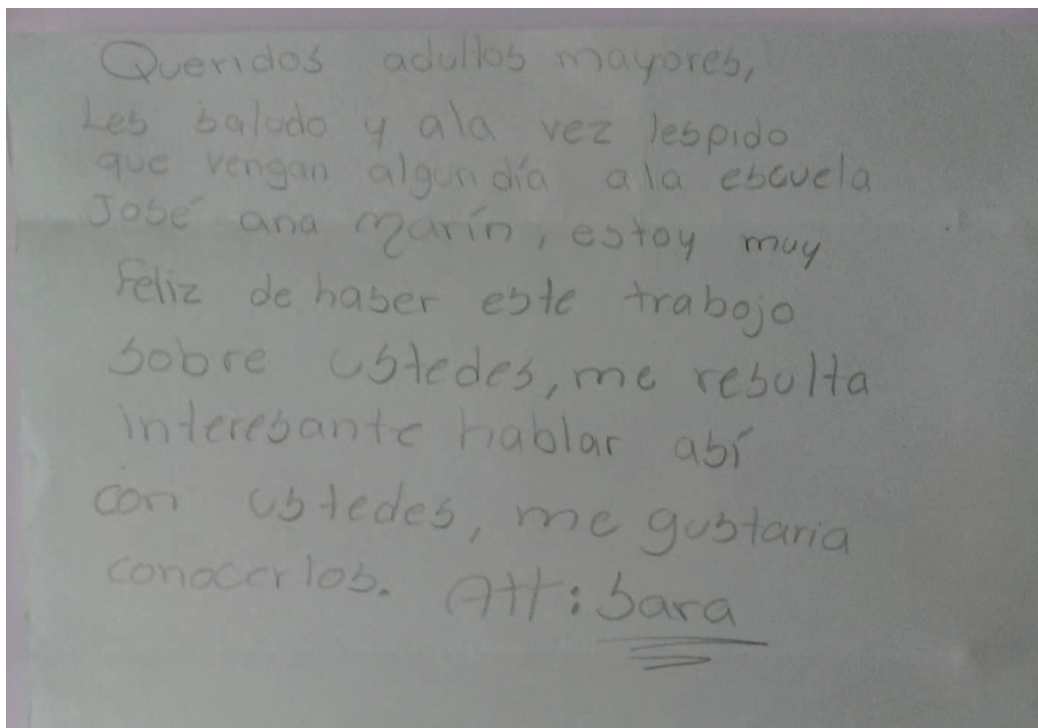 Queridos adultos mayores,
Les saludo y ala vez lespido
que vengan algun día ala escuela
José ana Marín, estoy muy
Feliz de haser este trabajo
sobre ustedes, me resulta
interesante hablar así
con ustedes, me gustaria
conocerlos. Att: Sara